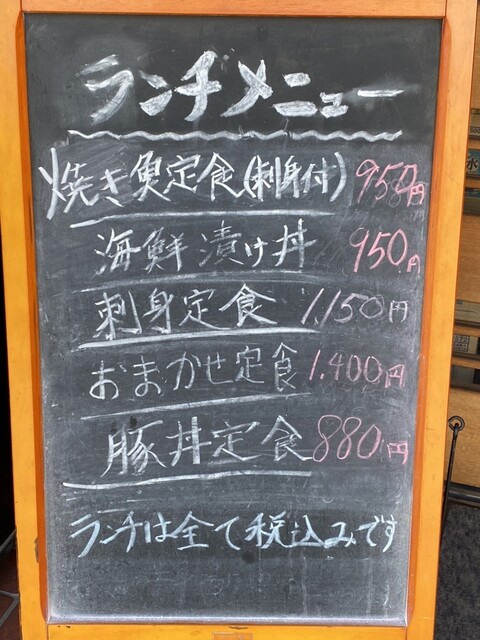 ランチメニュー
焼き魚定食(刺身付) 950円
海鮮漬け丼 950円
刺身定食 1,150円
おまかせ定食 1,400円
豚丼定食 880円
ランチは全て税込みです